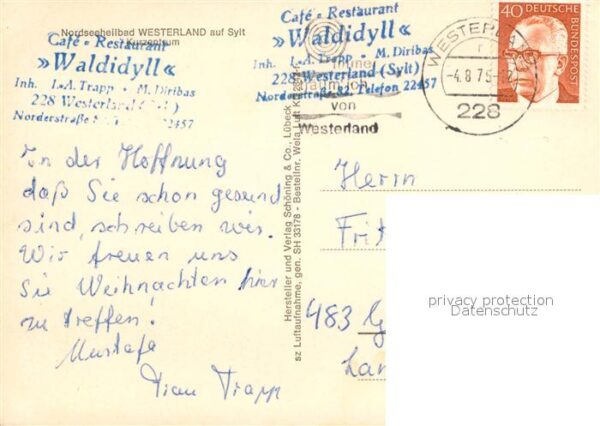 Nordseeheilbad WESTERLAND auf Sylt
Kurzentrum
Café - Restaurant
»Waldidyll«
Inh. I.-A. Trapp - M. Diribas
228 Westerland
Norderstraße 457
In der Hoffnung
daß Sie schon gesund
sind, schreiben wir.
Wir freuen uns
Sie Weihnachten hier
zu treffen!
Mustafa
Frau Trapp
Hersteller und Verlag Schöning & Co., Lübeck
sz Luftaufnahme, gen. SH 33178 - Bestellnr. Wela Luft
Café - Restaurant
»Waldidyll«
Inh. I.-A. Trapp - M. Diribas
228 Westerland (Sylt)
Norderstraße 82, Telefon 22457
von
Westerland
WESTERLAND
-4.8.75-
228
40 DEUTSCHE
BUNDESPOST
Herrn
Frit
483
privacy protection
Datenschutz